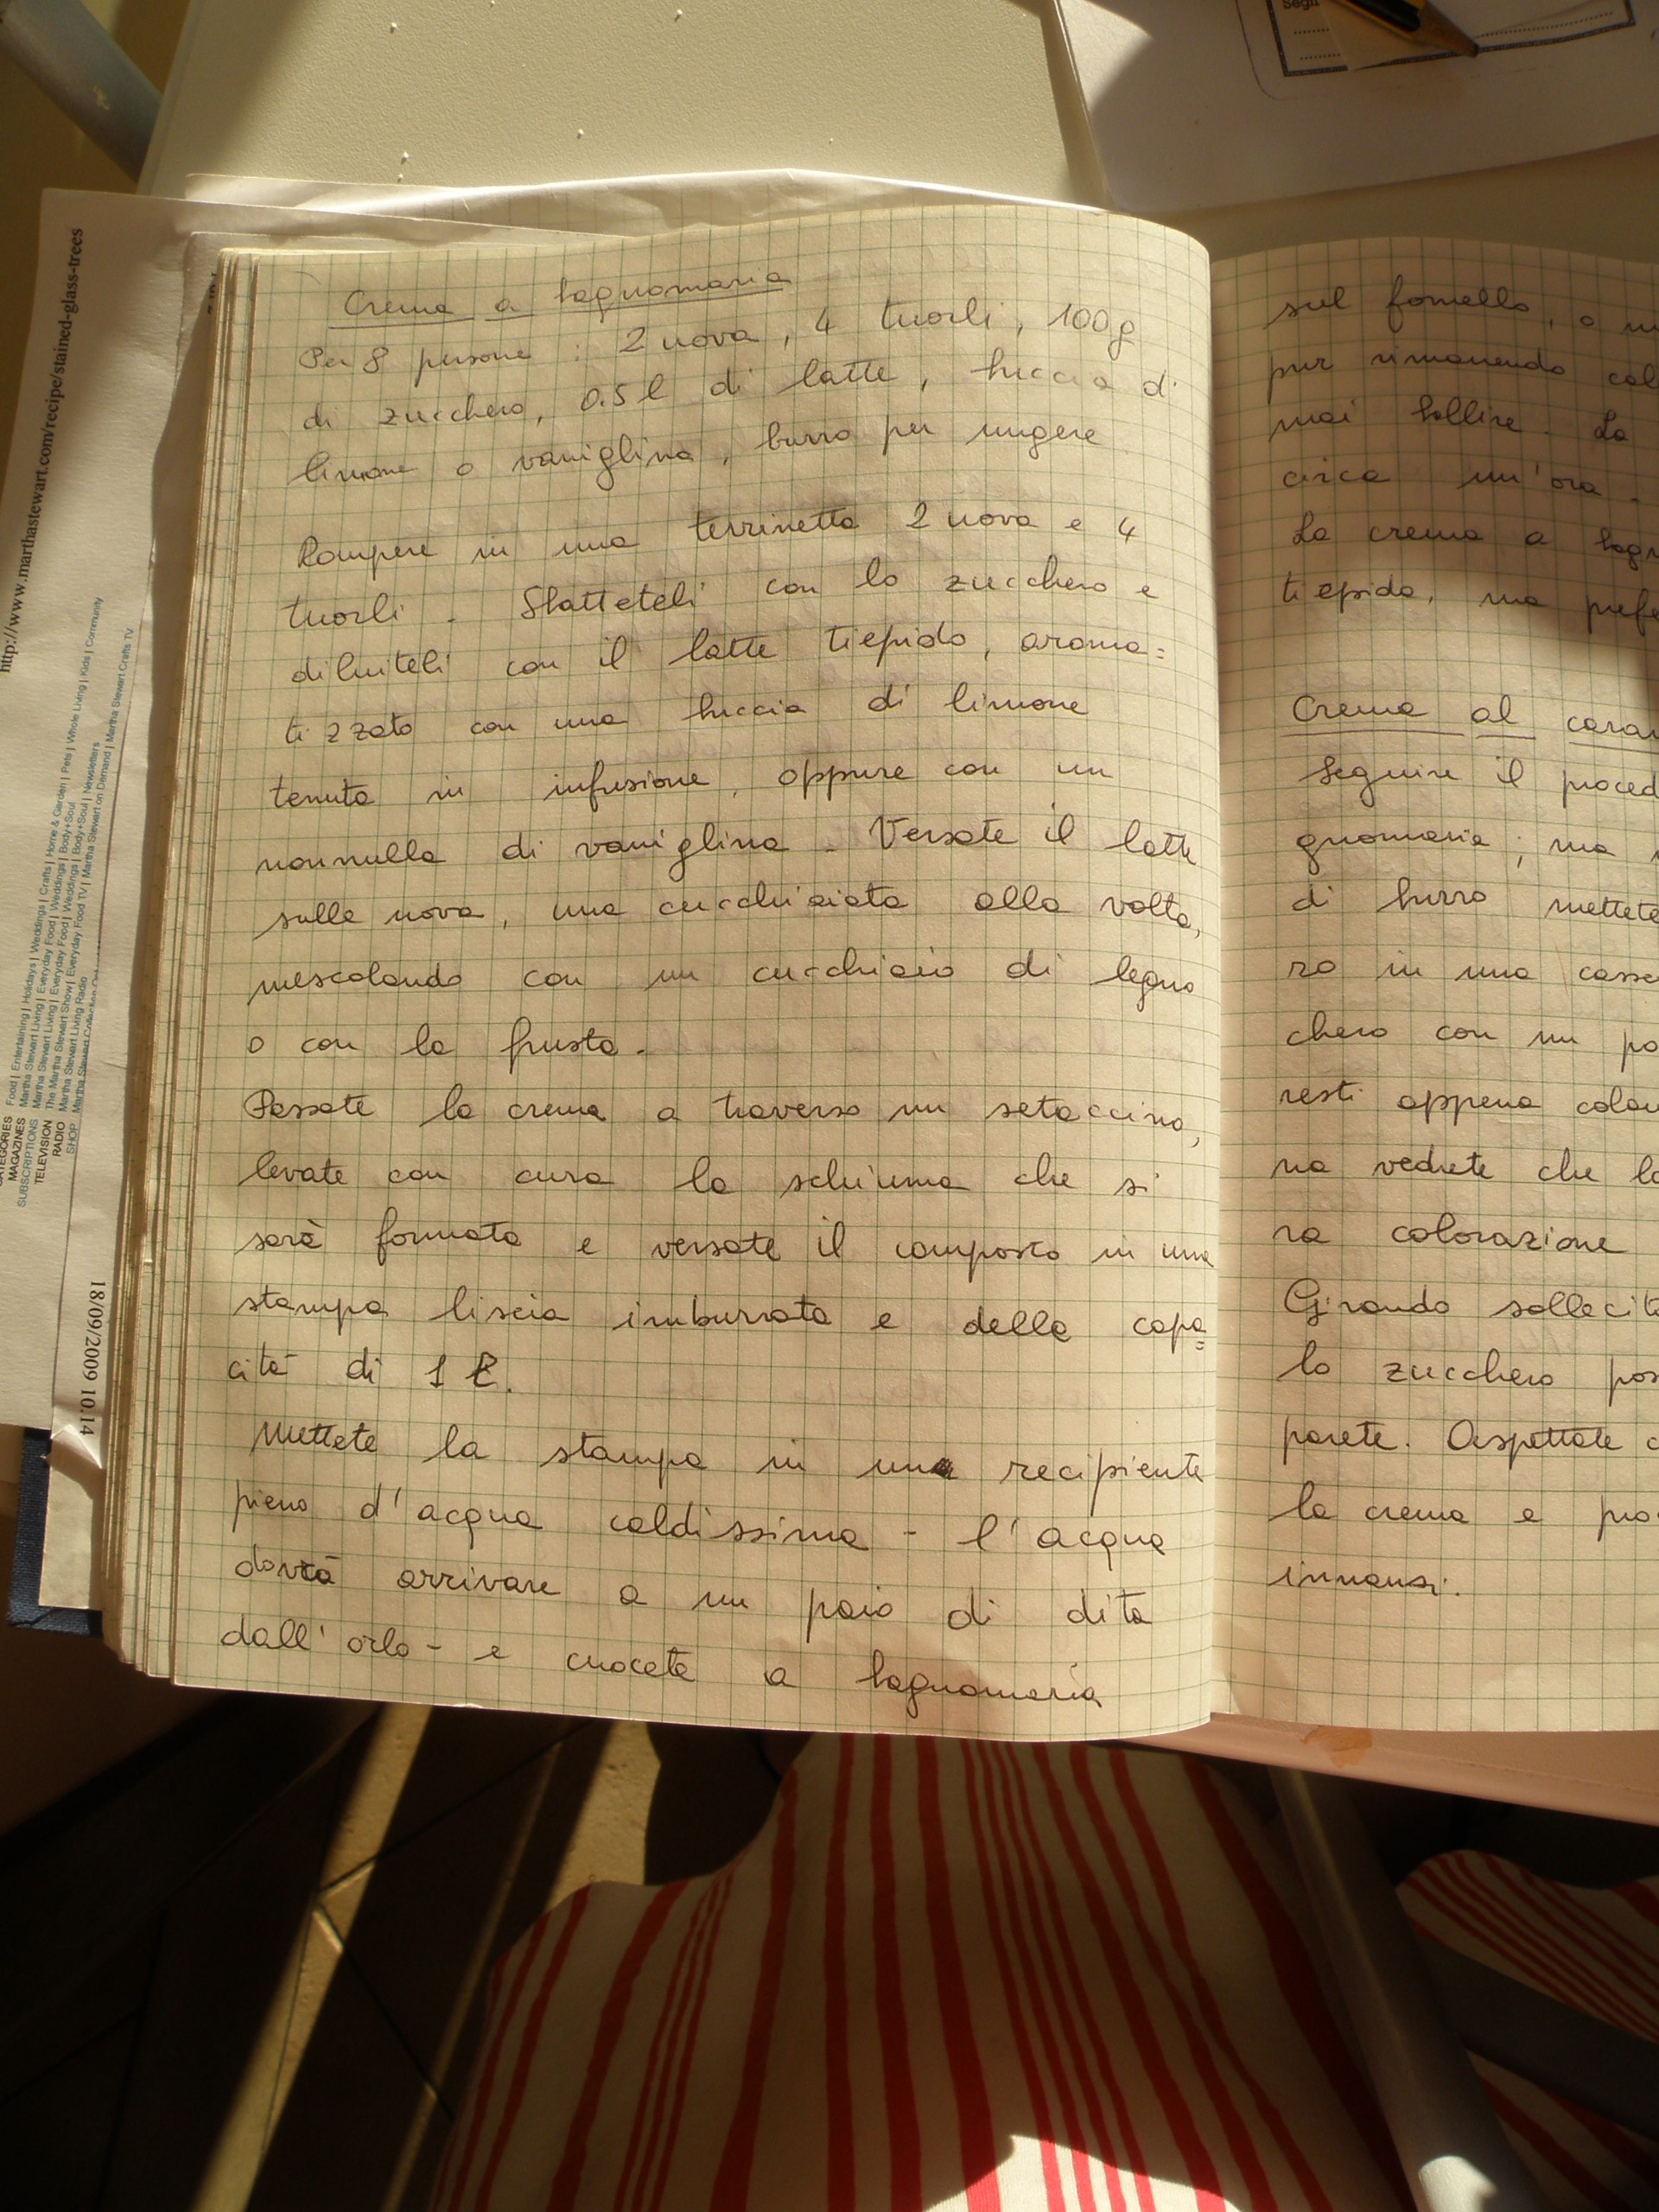 Crema a bagnomaria
Per 8 persone : 2 uova, 4 tuorli, 100g
di zucchero, 0.5 l di latte, buccia di
limone o vaniglina, burro per ungere
Rompere in una terrinetta 2 uova e 4
tuorli. Sbatteteli con lo zucchero e
diluiteli con il latte tiepido, aroma=
tizzato con una buccia di limone
tenuta in infusione, oppure con un
nonnulla di vaniglina. Versate il latte
sulle uova, una cucchiaiata alla volta,
mescolando con un cucchiaio di legno
o con la frusta.
Passate la crema a traverso un setaccino,
levate con cura la schiuma che si
sarà formata e versate il composto in una
stampa liscia imburrata e della capa=
cità di 1 l.
Mettete la stampa in un recipiente
pieno d'acqua caldissima - l'acqua
dovrà arrivare a un paio di dita
dall'orlo - e cuocete a bagnomaria
sul fornello, o
pur rimanendo cal
mai bollire. La
circa un'ora.
La crema a bagn
tiepida, ma prefe
Crema al cara
Seguire il proced
gnomaria; ma
di burro mettete
ro in una casse
chero con un po
resti appena color
na vedrete che l
ra colorazione
Girando sollecit
lo zucchero pos
parete. Aspettate
la crema e pro
innanzi.
http://www.marthastewart.com/recipe/stained-glass-trees
CATEGORIES Food | Entertaining | Holidays | Weddings | Crafts | Home & Garden | Pets | Whole Living | Kids | Community
MAGAZINES Martha Stewart Living | Everyday Food | Weddings | Body+Soul
SUBSCRIPTIONS Martha Stewart Living | Everyday Food | Weddings | Body+Soul | Newsletters
TELEVISION The Martha Stewart Show | Everyday Food TV | Martha Stewart on Demand | Martha Stewart Crafts TV
RADIO Martha Stewart Living Radio
SHOP Martha Stewart Collection
18/09/2009 10.14
Segu